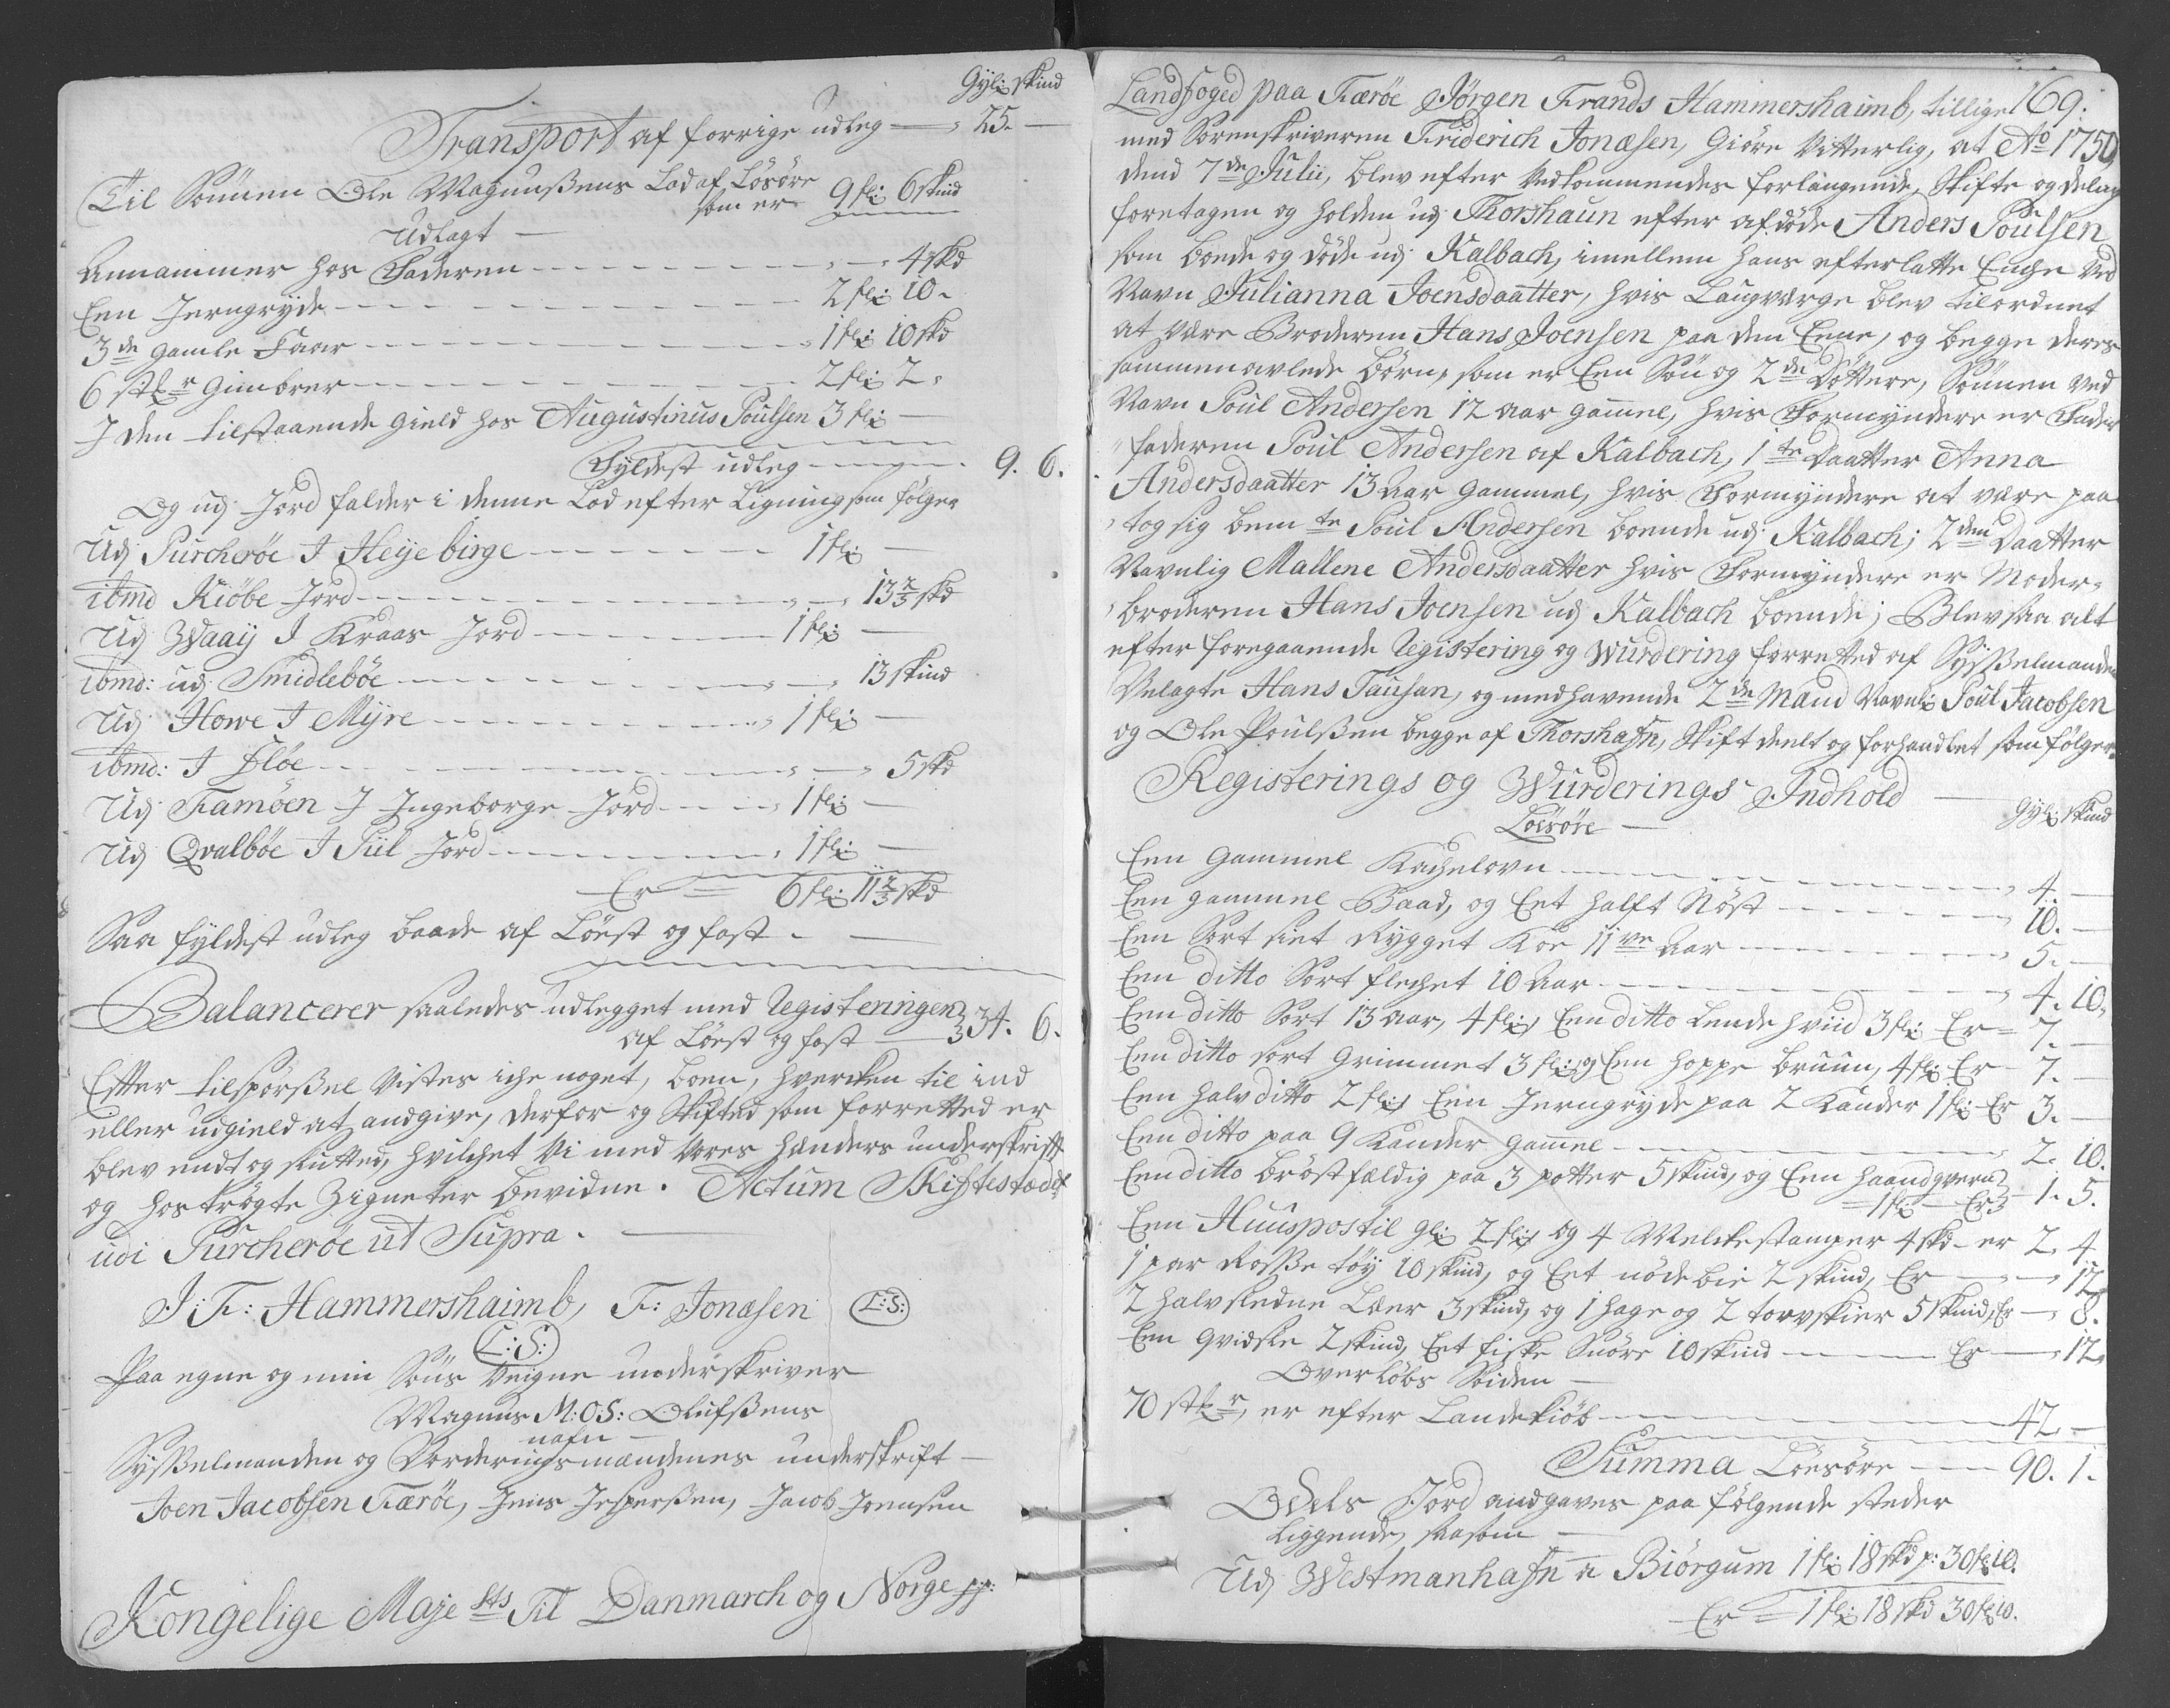 Gyl: skind
Transport af forrige udleg — 25. —
Til Sönnen Ole Magnußens Lod af Lösöre
som er 9 fl: 6 skind
Udlagt —
Annammer hos Faderen — 4 skd
Een Jerngryde — 2 fl: 10.
3de gamle Faar — 1 fl: 10 skd
6 stkr Gimbrer — 2 fl: 2.
I den tilstaaende gield hos Augustinus Poulsen 3 fl: —
Fyldest udleg — 9. 6.
Og udj Jord falder i denne Lod efter Ligning som fölger
Udj Purcheröe I Heyebirge — 1 fl: —
ibmd Kiöbe Jord — 13 2/3 skd
Udj Waaij I Kraas Jord — 1 fl: —
ibmd: udj Smidleböe — 13 skind
Udj Howe I Myre — 1 fl: —
ibmd: I Flöe — 5 skd
Udj Famöen I Ingeborge Jord — 1 fl: —
Udj Qvalböe I Piil Jord — 1 fl: —
Er = 6 fl: 11 2/3 skd
Saa fyldest udleg baade af Löest og fast. —
Balancerer saaledes udlegget med Registeringen
af Löest og fast — 34. 6.
Efter tilspörßel vistes iche noget, boen, hvercken til ind
eller udgield at andgive, derfor og Skiftet som forretted er
blev endt og sluttet, hvilchet Vi med Vores hænders underskrift
og hoströgte Zigneter bevidne. Actum Skiftestædet
udi Purcheröe ut Supra. —
J: F: Hammershaimb, F: Jonæsen (L:S:)
(L:S:)
Paa egne og min Söns Veigne underskriver
Magnus M:O:S: Olufßens
nafn —
Sysselmanden og Vorderingsmændenes underskrift —
Joen Jacobsen Færöe, Jens Jesperßen, Jacob Joensen
Kongelige Majests Til Danmarch og Norge pp:
169.
Landfoged paa Færöe Jörgen Frands Hammershaimb, tillige
med Sorenskriveren Friderich Jonæsen, Giöre Vitterlig, at Ao 1750
dend 7de Julii, blev efter Vedkommendes forlangende, Skifte og deling
foretagen og holden udj Thorshaun efter afdöde Anders Poulsen
som boede og döde udj Kalbach, imellem hans efterlatte Enche Ved
Navn Julianna Joensdaatter, hvis Laugværge blev tilordnet
at være Broderen Hans Joensen paa den Eene, og begge deres
sammenavlede börn, som er Een Sön og 2de Döttere, Sönnen Ved
Navn Poul Andersen 12 aar gammel, hvis Formyndere er Fader
faderen Poul Andersen af Kalbach, 1te Daatter Anna
Andersdaatter 13 Aar gammel, hvis Formyndere at være paa
tog sig bemte Poul Andersen boende udj Kalbach; 2den Daatter
Navnlig Mallene Andersdaatter hvis Formyndere er Moder-
broderen Hans Joensen udj Kalbach boende; Blev saa alt
efter foregaaende Registering og Wurdering forretted af Sysselmanden
Velagte Hans Tausan, og medhavende 2de Mænd Navnl: Poul Jacobsen
og Ole Poulßen begge af Thorshafn, Skift deelt og forhandlet som fölger.
Registerings og Wurderings Indhold —
Löesöre — Gyl: skind
Een gammel Kachelovn — 4. —
Een gammel Baad, og Eet halft Nöst — 10. —
Een Sort siet Rygget Koe 11ve Aar — 5. —
Een ditto Sort flechet 10 Aar — 4. 10.
Een ditto Sort 13 aar, 4 fl:, Een ditto Lende hviid 3 fl: Er = 7. —
Een ditto sort Grimmet 3 fl: og Een hoppe bruun, 4 fl: Er 7. —
Een halv ditto 2 fl:, Een Jerngryde paa 2 Kander 1 fl: Er 3. —
Een ditto paa 9 Kander gammel — 2. 10.
Een ditto bröstfældig paa 3 potter 5 skind, og Een haandqvern
1 fl: — Er 1. 5.
Een Huuspostil gl: 2 fl: og 4 Melckestamper 4 skd — er 2. 4.
1 par Roßetöy 10 skind, og Eet nöde bie 2 skind, Er — 12.
2 halvsledne Læer 3 skind, og 1 hage og 2 torvskier 5 skind, Er — 8.
Een qvidske 2 skind, Eet fiske Snöre 10 skind — Er — 12.
Overlöbs Seiden —
70 stkr, er efter Landekiöb — 42. —
Summa Löesöre — 90. 1.
Odels Jord andgaves paa fölgende steder
liggende, saasom —
Udj Westmanhafn a Biörgum 1 fl: 18 skd p: 30 fl: 10.
Er = 1 fl: 18 skd 30 fl: 10.